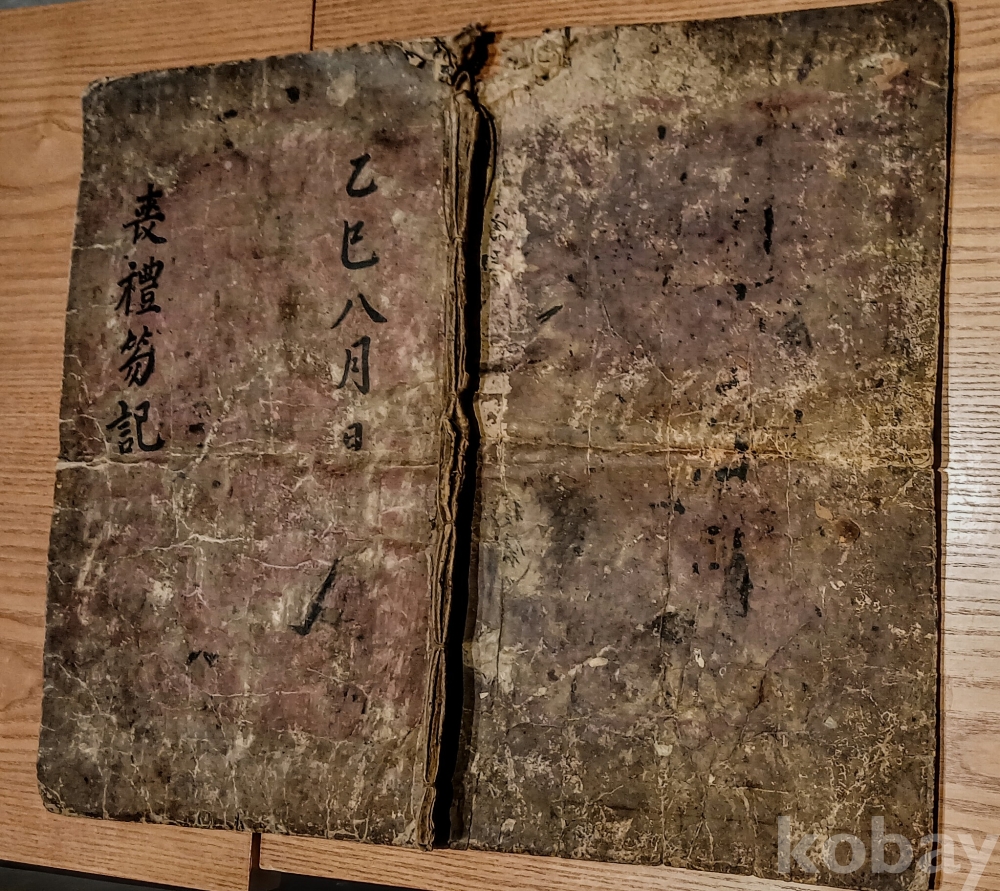 乙巳八月日
喪禮笏記
kobay